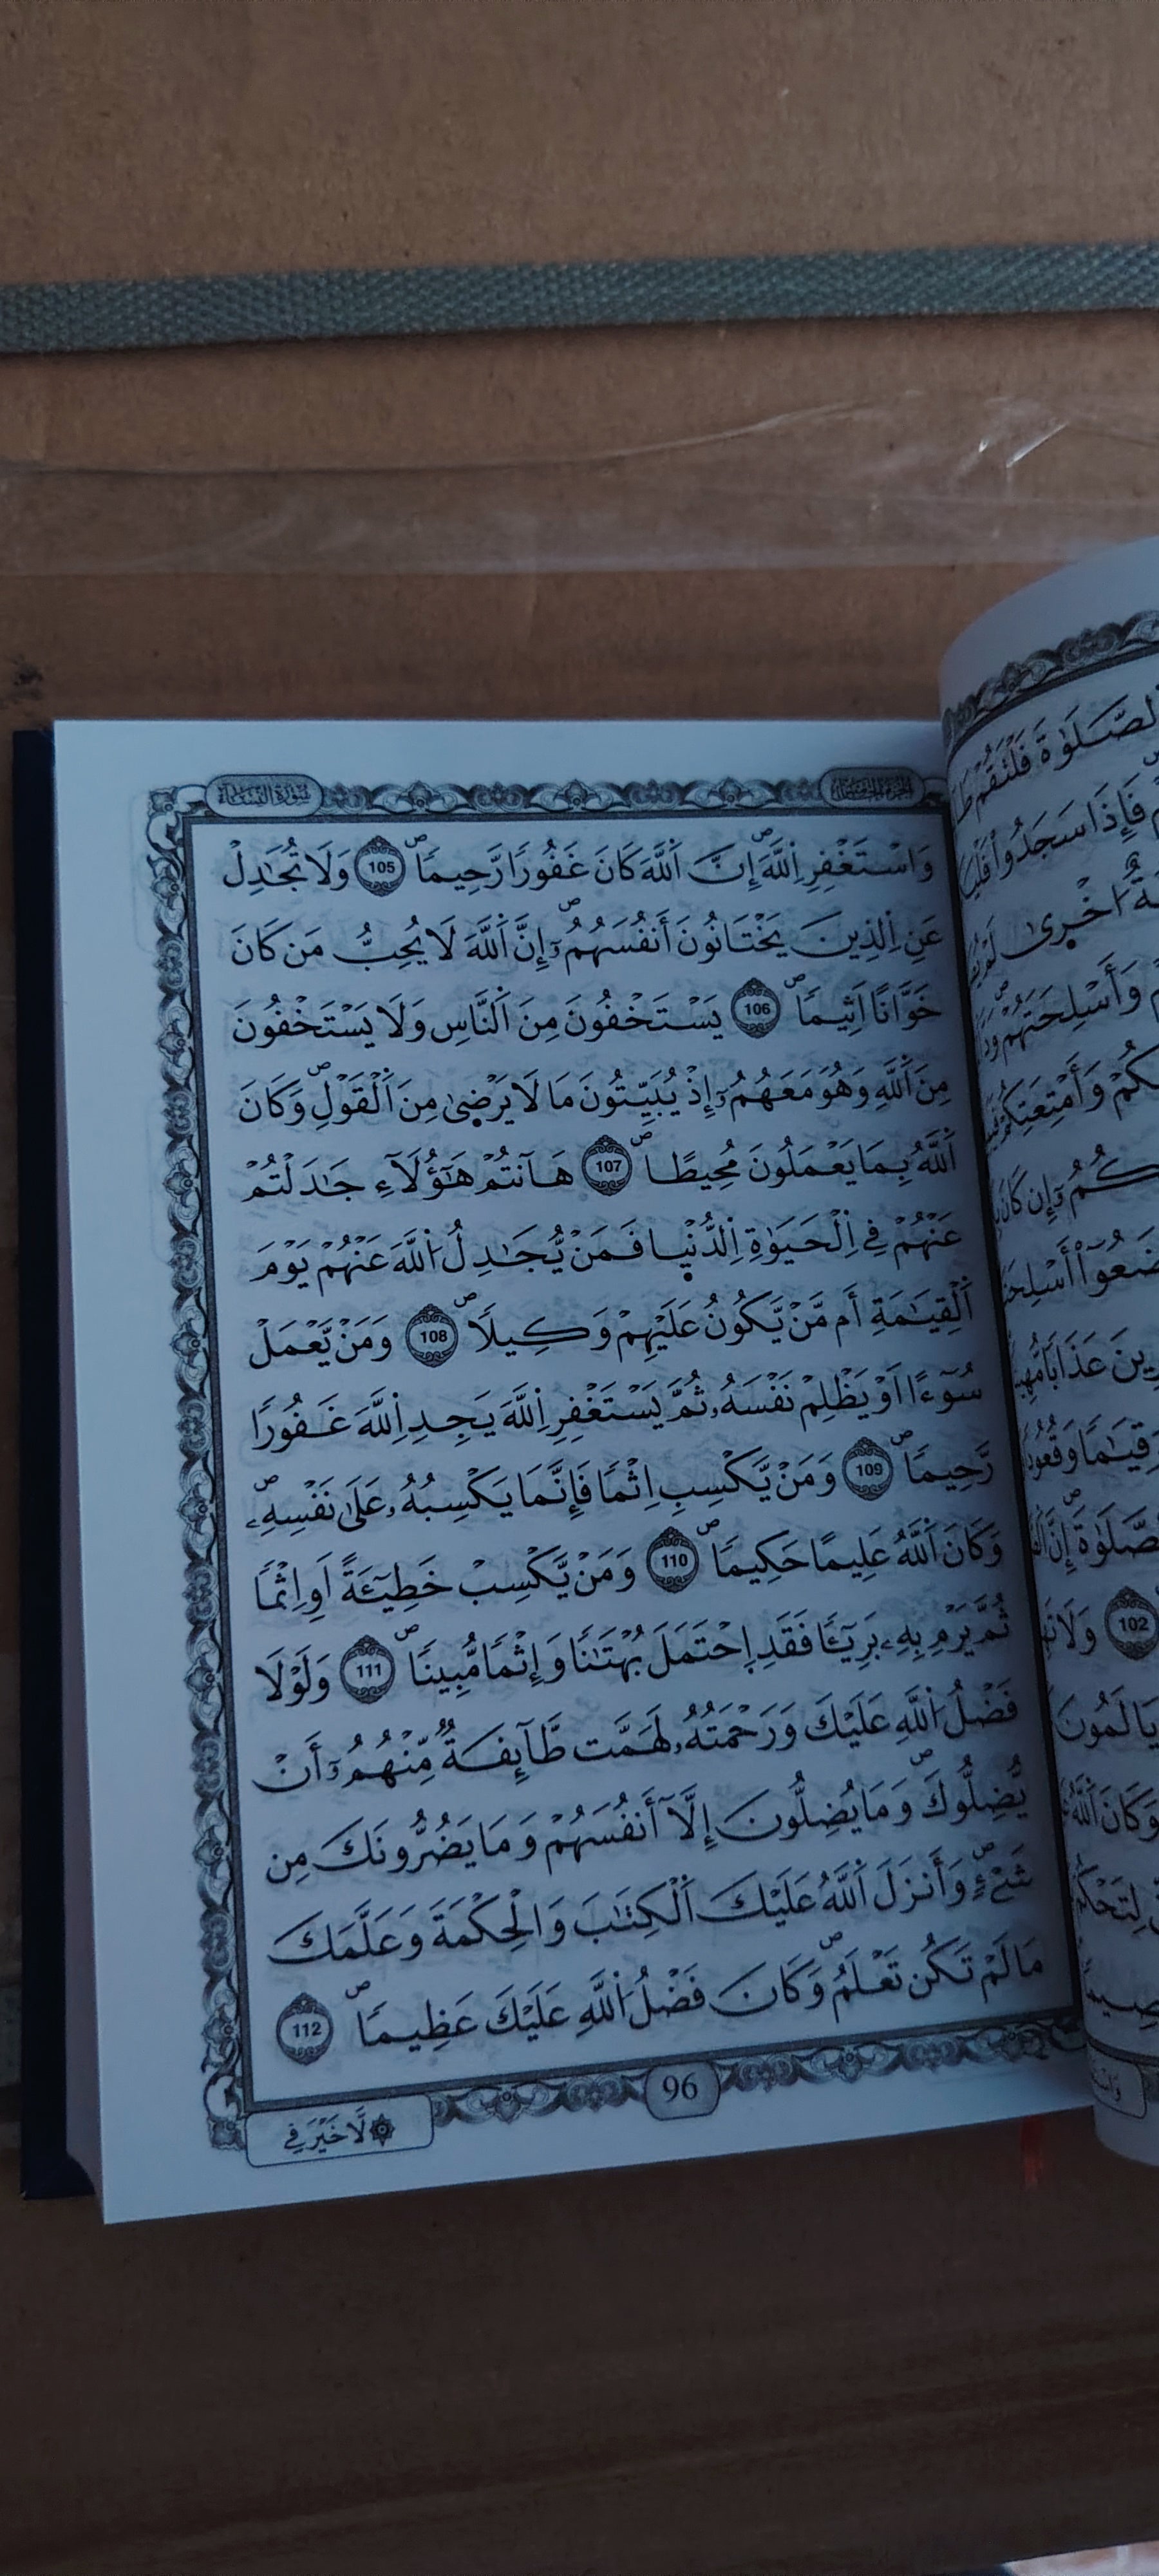 سورة النساء
الجزء الخامس
وَاسْتَغْفِرِ اِ۬للَّهَۖ إِنَّ اَ۬للَّهَ كَانَ غَفُورٗا رَّحِيمٗاۖ 105 وَلَا تُجَٰدِلْ
عَنِ اِ۬لذِينَ يَخْتَانُونَ أَنفُسَهُمُۥٓۖ إِنَّ اَ۬للَّهَ لَا يُحِبُّ مَن كَانَ
خَوَّاناً اَثِيمٗاۖ 106 يَسْتَخْفُونَ مِنَ اَ۬لنَّاسِ وَلَا يَسْتَخْفُونَ
مِنَ اَ۬للَّهِ وَهُوَ مَعَهُمُۥٓ إِذْ يُبَيِّتُونَ مَا لَا يَرْض۪يٰ مِنَ اَ۬لْقَوْلِۖ وَكَانَ
اَ۬للَّهُ بِمَا يَعْمَلُونَ مُحِيطًاۖ 107 هَٰٓانتُمْ هَٰٓؤُلَآءِ جَٰدَلْتُمْ
عَنْهُمْ فِي اِ۬لْحَيَوٰةِ اِ۬لدُّنْي۪ا فَمَنْ يُّجَٰدِلُ اُ۬للَّهَ عَنْهُمْ يَوْمَ
اَ۬لْقِيَٰمَةِ أَم مَّنْ يَّكُونُ عَلَيْهِمْ وَكِيلٗاۖ 108 وَمَنْ يَّعْمَلْ
سُوٓءًا اَوْ يَظْلِمْ نَفْسَهُۥ ثُمَّ يَسْتَغْفِرِ اِ۬للَّهَ يَجِدِ اِ۬للَّهَ غَفُورٗا
رَّحِيمٗاۖ 109 وَمَنْ يَّكْسِبِ اِثْمٗا فَإِنَّمَا يَكْسِبُهُۥ عَلَىٰ نَفْسِهِۦۖ
وَكَانَ اَ۬للَّهُ عَلِيمًا حَكِيمٗاۖ 110 وَمَنْ يَّكْسِبْ خَطِيٓـَٔةً اَوِ اِثْمٗا
ثُمَّ يَرْمِ بِهِۦ بَرِيٓـٔٗا فَقَدِ اِ۪حْتَمَلَ بُهْتَٰنٗا وَإِثْمٗا مُّبِينٗاۖ 111 وَلَوْلَا
فَضْلُ اُ۬للَّهِ عَلَيْكَ وَرَحْمَتُهُۥ لَهَمَّت طَّآئِفَةٌ مِّنْهُمُۥٓ أَنْ
يُّضِلُّوكَۖ وَمَا يُضِلُّونَ إِلَّآ أَنفُسَهُمْ وَمَا يَضُرُّونَكَ مِن
شَےْءٖۖ وَأَنزَلَ اَ۬للَّهُ عَلَيْكَ اَ۬لْكِتَٰبَ وَالْحِكْمَةَ وَعَلَّمَكَ
مَا لَمْ تَكُن تَعْلَمُۖ وَكَانَ فَضْلُ اُ۬للَّهِ عَلَيْكَ عَظِيمٗاۖ 112
96
۞لَّا خَيْرَ فِي